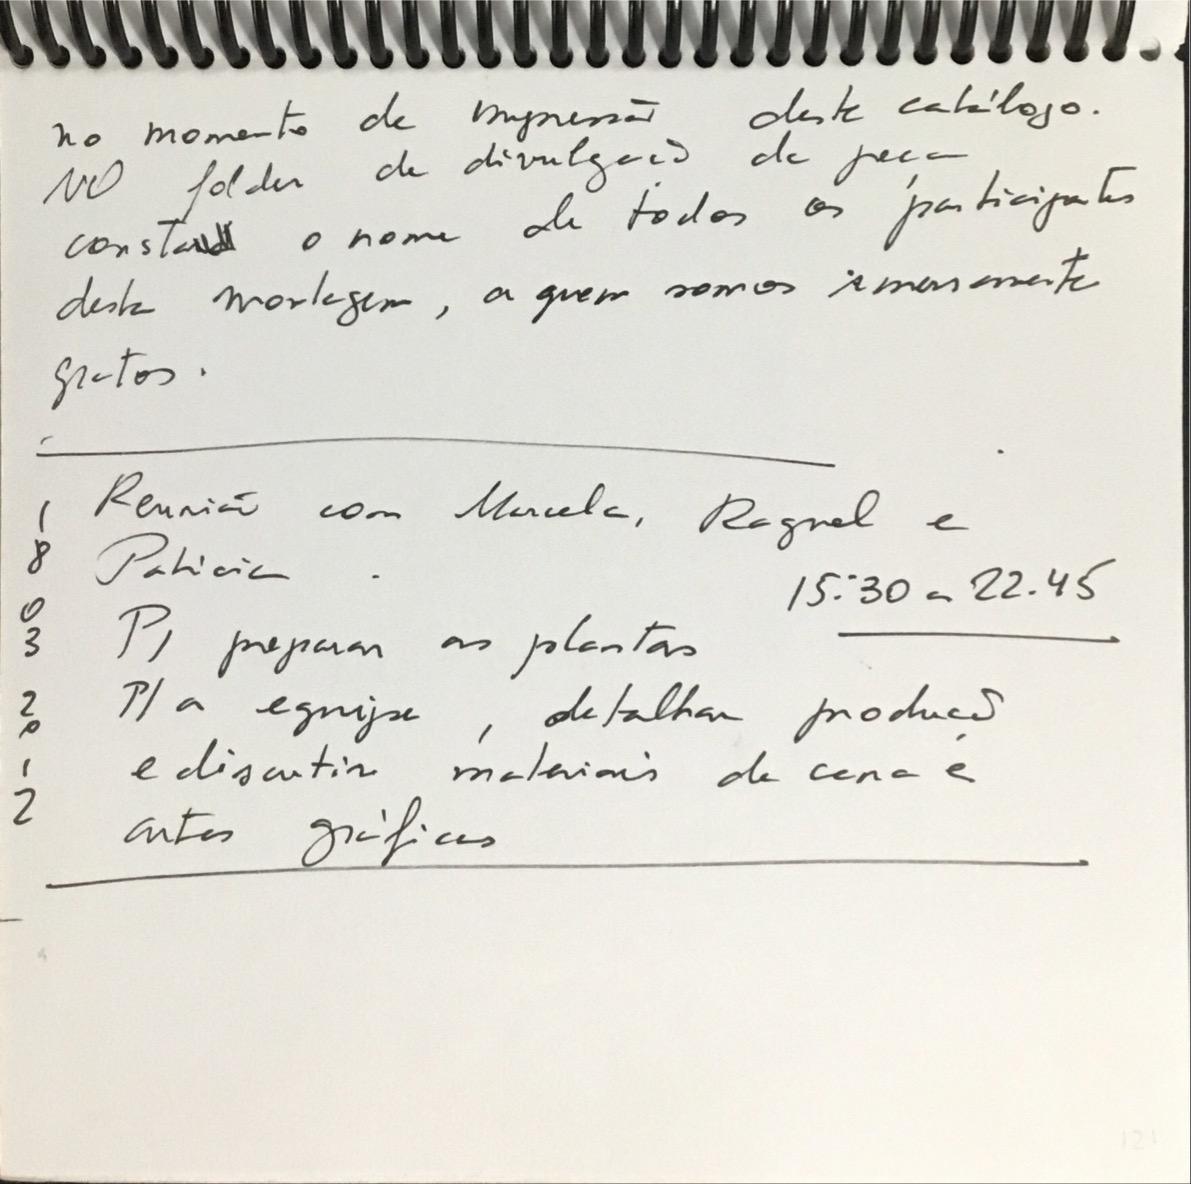 no momento de impressão deste catálogo.
NO folder de divulgação da peça
consta o nome de todos os participantes
desta montagem, a quem somos imensamente
gratos.
Reunião com Marcela, Raquel e
Patricia.
15:30 a 22.45
P/ preparar as plantas
P/ a equipe, detalhar produção
e discutir materiais de cena e
artes gráficas
18
03
2012
121